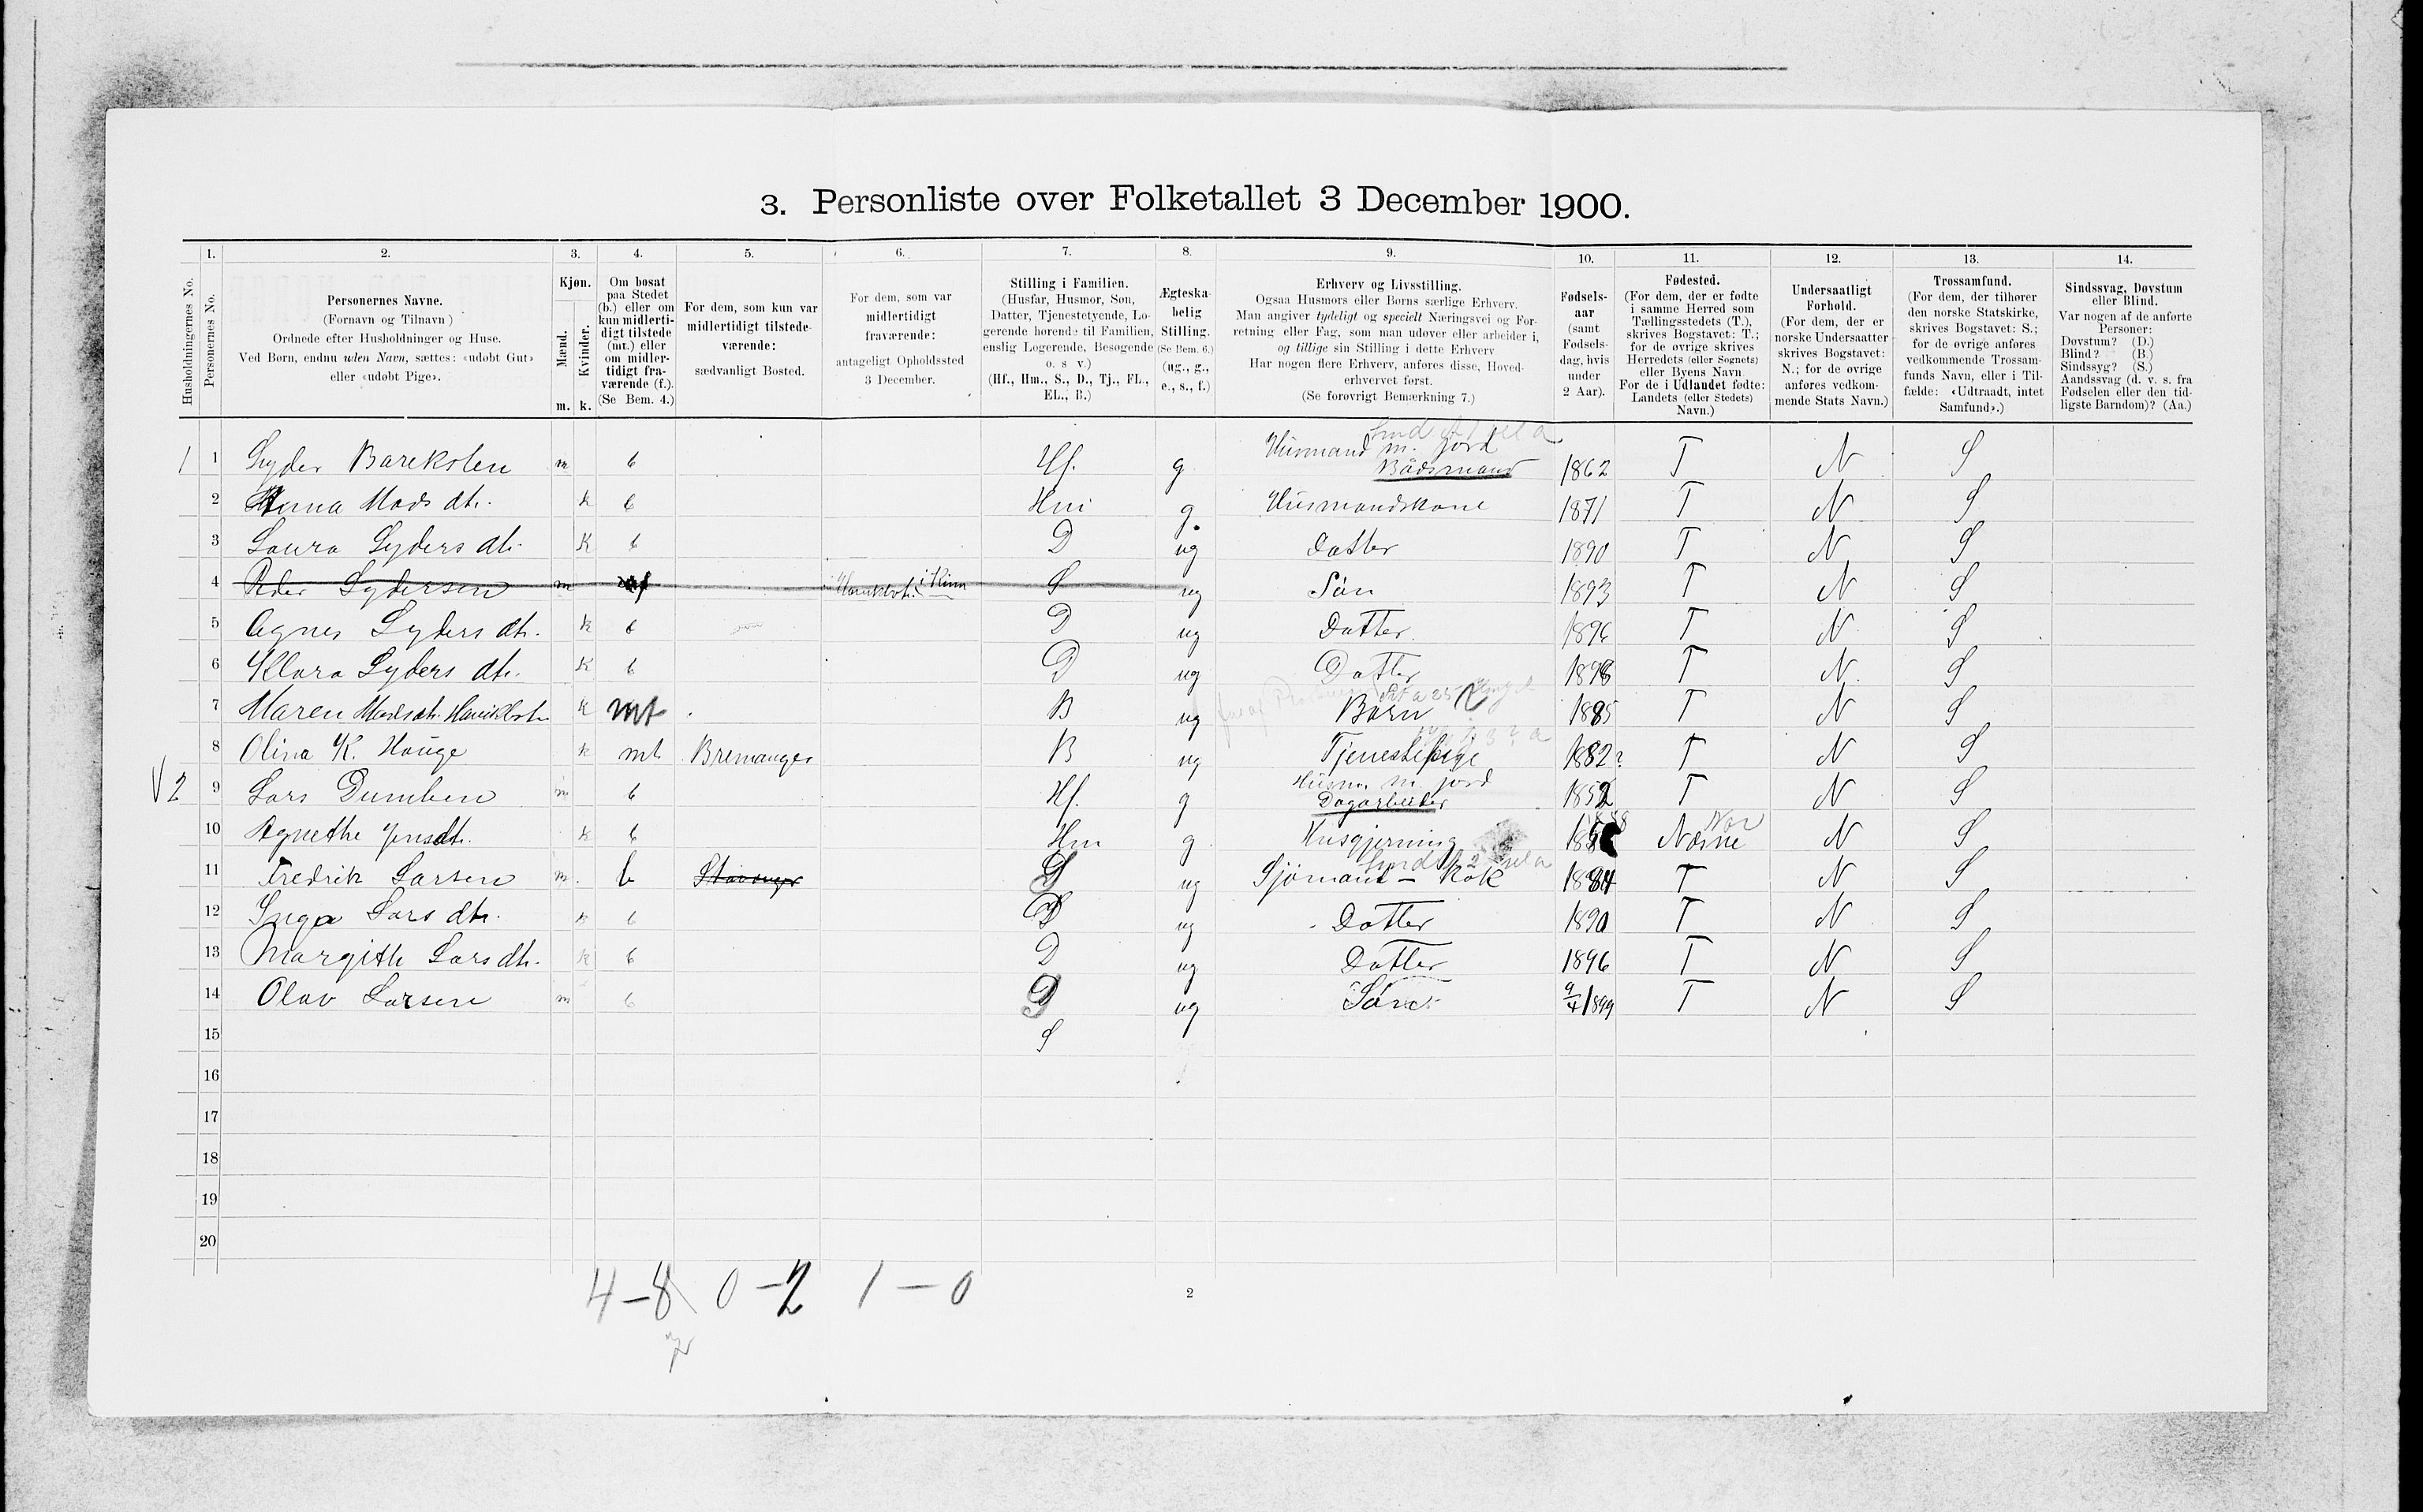 3. Personliste over Folketallet 3 December 1900.
1. 2. 3. 4. 5. 6. 7. 8. 9. 10. 11. 12. 13. 14.
Husholdningernes No.
Personernes No.
Personernes Navne.
(Fornavn og Tilnavn)
Ordnede efter Husholdninger og Huse.
Ved Børn, endnu uden Navn, sættes: «udøbt Gut»
eller «udøbt Pige».
Kjøn.
Mænd.
Kvinder.
m. k.
Om bosat
paa Stedet
(b.) eller om
kun midlerti-
digt tilstede
(mt.) eller
om midler-
tidigt fra-
værende (f.).
(Se Bem. 4.)
For dem, som kun var
midlertidigt tilstede-
værende:
sædvanligt Bosted.
For dem, som var
midlertidigt
fraværende:
antageligt Opholdssted
3 December.
Stilling i Familien.
(Husfar, Husmor, Søn,
Datter, Tjenestetyende, Lo-
gerende hørende til Familien,
enslig Logerende, Besøgende
o. s v.)
(Hf., Hm., S., D., Tj., FL.,
EL., B.)
Ægteska-
belig
Stilling.
(Se Bem. 6.)
(ug., g.,
e., s., f.)
Erhverv og Livsstilling.
Ogsaa Husmors eller Børns særlige Erhverv.
Man angiver tydeligt og specielt Næringsvei og For-
retning eller Fag, som man udøver eller arbeider i,
og tillige sin Stilling i dette Erhverv
Har nogen flere Erhverv, anføres disse, Hoved-
erhvervet først.
(Se forøvrigt Bemærkning 7.)
Fødsels-
aar
(samt
Fødsels-
dag, hvis
under
2 Aar).
Fødested.
(For dem, der er fødte
i samme Herred som
Tællingsstedets (T.),
skrives Bogstavet: T.;
for de øvrige skrives
Herredets (eller Sognets)
eller Byens Navn
For de i Udlandet fødte:
Landets (eller Stedets)
Navn.)
Undersaatligt
Forhold.
(For dem, der er
norske Undersaatter
skrives Bogstavet:
N.; for de øvrige
anføres vedkom-
mende Stats Navn.)
Trossamfund.
(For dem, der tilhører
den norske Statskirke,
skrives Bogstavet: S.;
for de øvrige anføres
vedkommende Trossam-
funds Navn, eller i Til-
fælde: «Udtraadt, intet
Samfund».)
Sindssvag, Døvstum
eller Blind.
Var nogen af de anførte
Personer:
Døvstum? (D.)
Blind? (B.)
Sindssyg? (S.)
Aandssvag (d. v. s. fra
Fødselen eller den tid-
ligste Barndom)? (Aa.)
1 1 Lyder Barekslen m b Hf. g Husmand m. jord Bådsmand 1862 T N S
2 Anna Mads dtr. k b Hm g Husmandskone 1871 T N S
3 Laura Lyders dtr. k b D ug Datter 1890 T N S
4 Peder Lydersen m f i Kinn S ug Søn 1893 T N S
5 Agnes Lyders dtr. k b D ug Datter. 1896 T N S
6 Klara Lyders dtr. k b D ug Datter 1898 T N S
7 Maren k mt B ug Barn 1885 T N S
8 Olina K. Hauge k mt Bremanger B ug Tjenestepige 1882? T N S
2 9 Lars Dumben m b Hf. g Husm. m. jord Dagarbeider 1852 T N S
10 Agnethe Jensdtr. k b Hm g Husgjerning N S
11 Fredrik Larsen m b Stavanger S ug Sjømand - Kok 1884 T N S
12 Inga Lars dtr. k b D ug Datter 1890 T N S
13 Margith Lars dtr. k b D ug Datter 1896 T N S
14 Olav Larsen m b ug Søn 9/4 1899 T N S
15 S
16
17
18
19
20
4 - 8 0 - 2 1 - 0
2